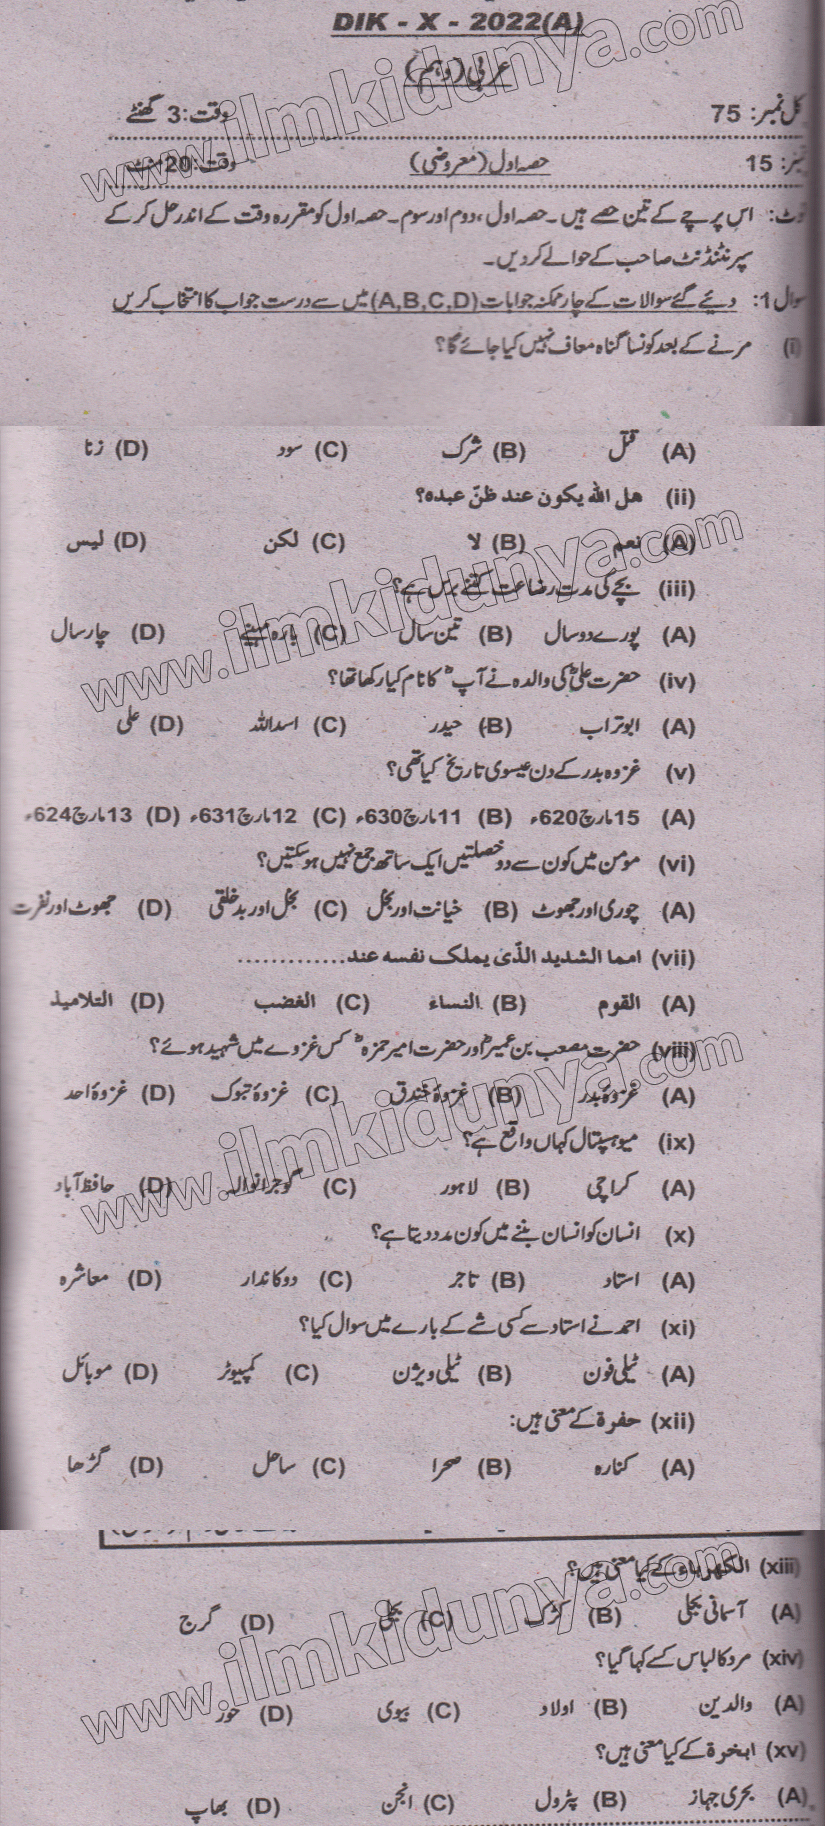 DIK - X - 2022(A)
عربی (دہم)
کل نمبر: 75 وقت: 3 گھنٹے
نمبر: 15 حصہ اول (معروضی) وقت: 20 منٹ
نوٹ: اس پرچے کے تین حصے ہیں۔ حصہ اول، دوم اور سوم۔ حصہ اول کو مقررہ وقت کے اندر حل کر کے
سپرنٹنڈنٹ صاحب کے حوالے کر دیں۔
سوال 1: دیئے گئے سوالات کے چار ممکنہ جوابات (A,B,C,D) میں سے درست جواب کا انتخاب کریں
(i) مرنے کے بعد کونسا گناہ معاف نہیں کیا جائے گا؟
(A) قتل (B) شرک (C) سود (D) زنا
(ii) هل الله يكون عند ظنّ عبده؟
(A) نعم (B) لا (C) لكن (D) ليس
(iii) بچے کی مدت رضاعت کتنے برس ہے؟
(A) پورے دو سال (B) تین سال (C) بارہ مہینے (D) چار سال
(iv) حضرت علیؓ کی والدہ نے آپؓ کا نام کیا رکھا تھا؟
(A) ابوتراب (B) حیدر (C) اسد اللہ (D) علی
(v) غزوہ بدر کے دن عیسوی تاریخ کیا تھی؟
(A) 15 مارچ 620ء (B) 11 مارچ 630ء (C) 12 مارچ 631ء (D) 13 مارچ 624ء
(vi) مومن میں کون سے دو خصلتیں ایک ساتھ جمع نہیں ہو سکتیں؟
(A) چوری اور جھوٹ (B) خیانت اور بخل (C) بخل اور بد خلقی (D) جھوٹ اور نفرت
(vii) امما الشديد الذّى يملك نفسه عند.............
(A) القوم (B) النساء (C) الغضب (D) التلاميذ
(viii) حضرت مصعب بن عمیرؓ اور حضرت امیر حمزہؓ کس غزوے میں شہید ہوئے؟
(A) غزوۂ بدر (B) غزوۂ خندق (C) غزوۂ تبوک (D) غزوۂ احد
(ix) میو ہسپتال کہاں واقع ہے؟
(A) کراچی (B) لاہور (C) گوجرانوالہ (D) حافظ آباد
(x) انسان کو انسان بننے میں کون مدد دیتا ہے؟
(A) استاد (B) تاجر (C) دوکاندار (D) معاشرہ
(xi) احمد نے استاد سے کسی شے کے بارے میں سوال کیا؟
(A) ٹیلی فون (B) ٹیلی ویژن (C) کمپیوٹر (D) موبائل
(xii) حفرة کے معنی ہیں:
(A) کنارہ (B) صحرا (C) ساحل (D) گڑھا
(xiii) الكهرباء کے کیا معنی ہیں؟
(A) آسمانی بجلی (B) کڑک (C) بجلی (D) گرج
(xiv) مرد کا لباس کسے کہا گیا؟
(A) والدین (B) اولاد (C) بیوی (D) حور
(xv) ابخرة کے کیا معنی ہیں؟
(A) بحری جہاز (B) پٹرول (C) انجن (D) بھاپ
www.ilmkidunya.com
www.ilmkidunya.com
www.ilmkidunya.com
www.ilmkidunya.com